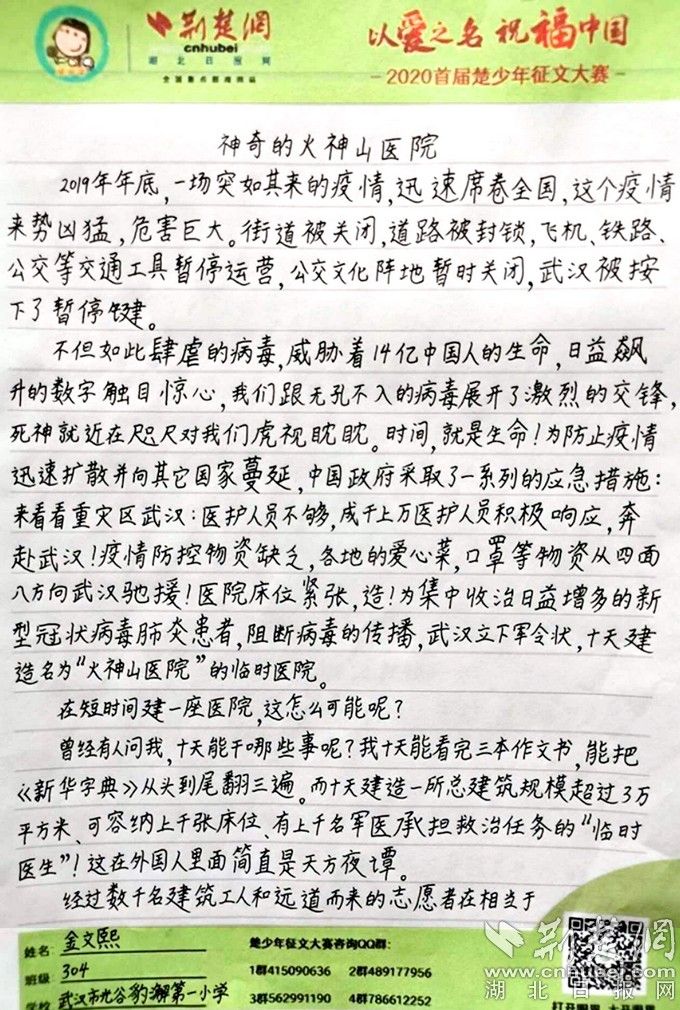 荆楚网
cnhubei
湖北日报网
全国重点新闻网站
以爱之名 祝福中国
-2020首届楚少年征文大赛-
神奇的火神山医院
2019年年底,一场突如其来的疫情,迅速席卷全国,这个疫情
来势凶猛,危害巨大。街道被关闭,道路被封锁,飞机、铁路、
公交等交通工具暂停运营,公交文化阵地暂时关闭,武汉被按
下了暂停键。
不但如此肆虐的病毒,威胁着14亿中国人的生命,日益飙
升的数字触目惊心,我们跟无孔不入的病毒展开了激烈的交锋,
死神就近在咫尺对我们虎视眈眈。时间,就是生命!为防止疫情
迅速扩散并向其它国家蔓延,中国政府采取了一系列的应急措施:
来看看重灾区武汉:医护人员不够,成千上万医护人员积极响应,奔
赴武汉!疫情防控物资缺乏,各地的爱心菜,口罩等物资从四面
八方向武汉驰援!医院床位紧张,造!为集中收治日益增多的新
型冠状病毒肺炎患者,阻断病毒的传播,武汉立下军令状,十天建
造名为"火神山医院"的临时医院。
在短时间建一座医院,这怎么可能呢?
曾经有人问我,十天能干哪些事呢?我十天能看完三本作文书,能把
《新华字典》从头到尾翻三遍。而十天建造一所总建筑规模超过3万
平方米、可容纳上千张床位、有上千名军医承担救治任务的"临时
医生"!这在外国人里面简直是天方夜谭。
经过数千名建筑工人和远道而来的志愿者在相当于
姓名:金文熙
班级:304
学校:武汉市光谷豹澥第一小学
楚少年征文大赛咨询QQ群:
1群415090636 2群489177956
3群562991190 4群786612252
荆楚网
www.cnhubei.com
湖北日报网